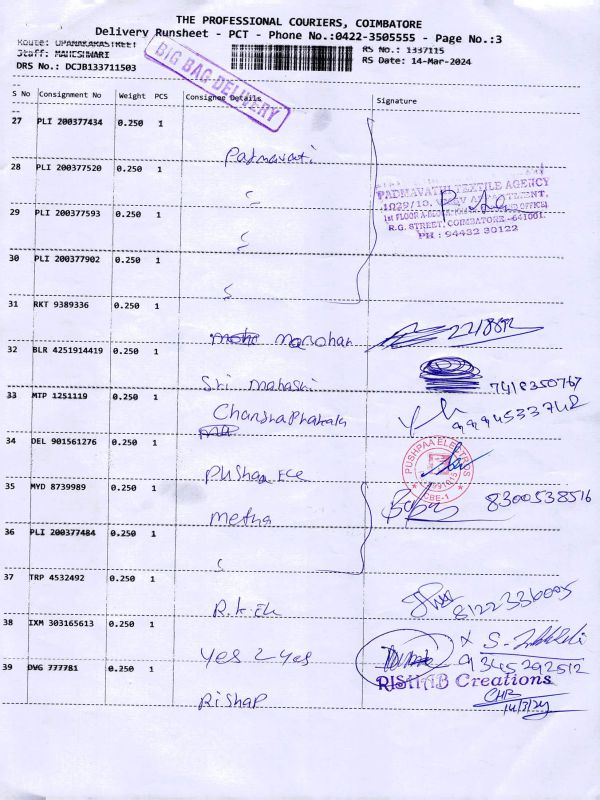 THE PROFESSIONAL COURIERS, COIMBATORE
Delivery Runsheet - PCT - Phone No.:0422-3505555 - Page No.:3
Route: UPANAKARASTREET RS No.: 1337115
Staff: MAHESHWARI RS Date: 14-Mar-2024
DRS No.: DCJB133711503
BIG BAG DELIVERY
S No Consignment No Weight PCS Consignee Details Signature
27 PLI 200377434 0.250 1
Padmavati
28 PLI 200377520 0.250 1
PADMAVATHI TEXTILE AGENCY
1st FLOOR
29 PLI 200377593 0.250 1
R.G. STREET, COIMBATORE -641001.
PH : 94432 30122
30 PLI 200377902 0.250 1
31 RKT 9389336 0.250 1
Manohar
32 BLR 4251914419 0.250 1
Sri 7418350767
33 MTP 1251119 0.250 1
34 DEL 901561276 0.250 1
PUSHPAA
CBE-1
35 MYD 8739989 0.250 1
Metha 8300538516
36 PLI 200377484 0.250 1
37 TRP 4532492 0.250 1
R.K 8122336005
38 IXM 303165613 0.250 1
Yes 2 Yes 9345292512
39 DWG 777781 0.250 1
RISHAB Creations
14/3/24